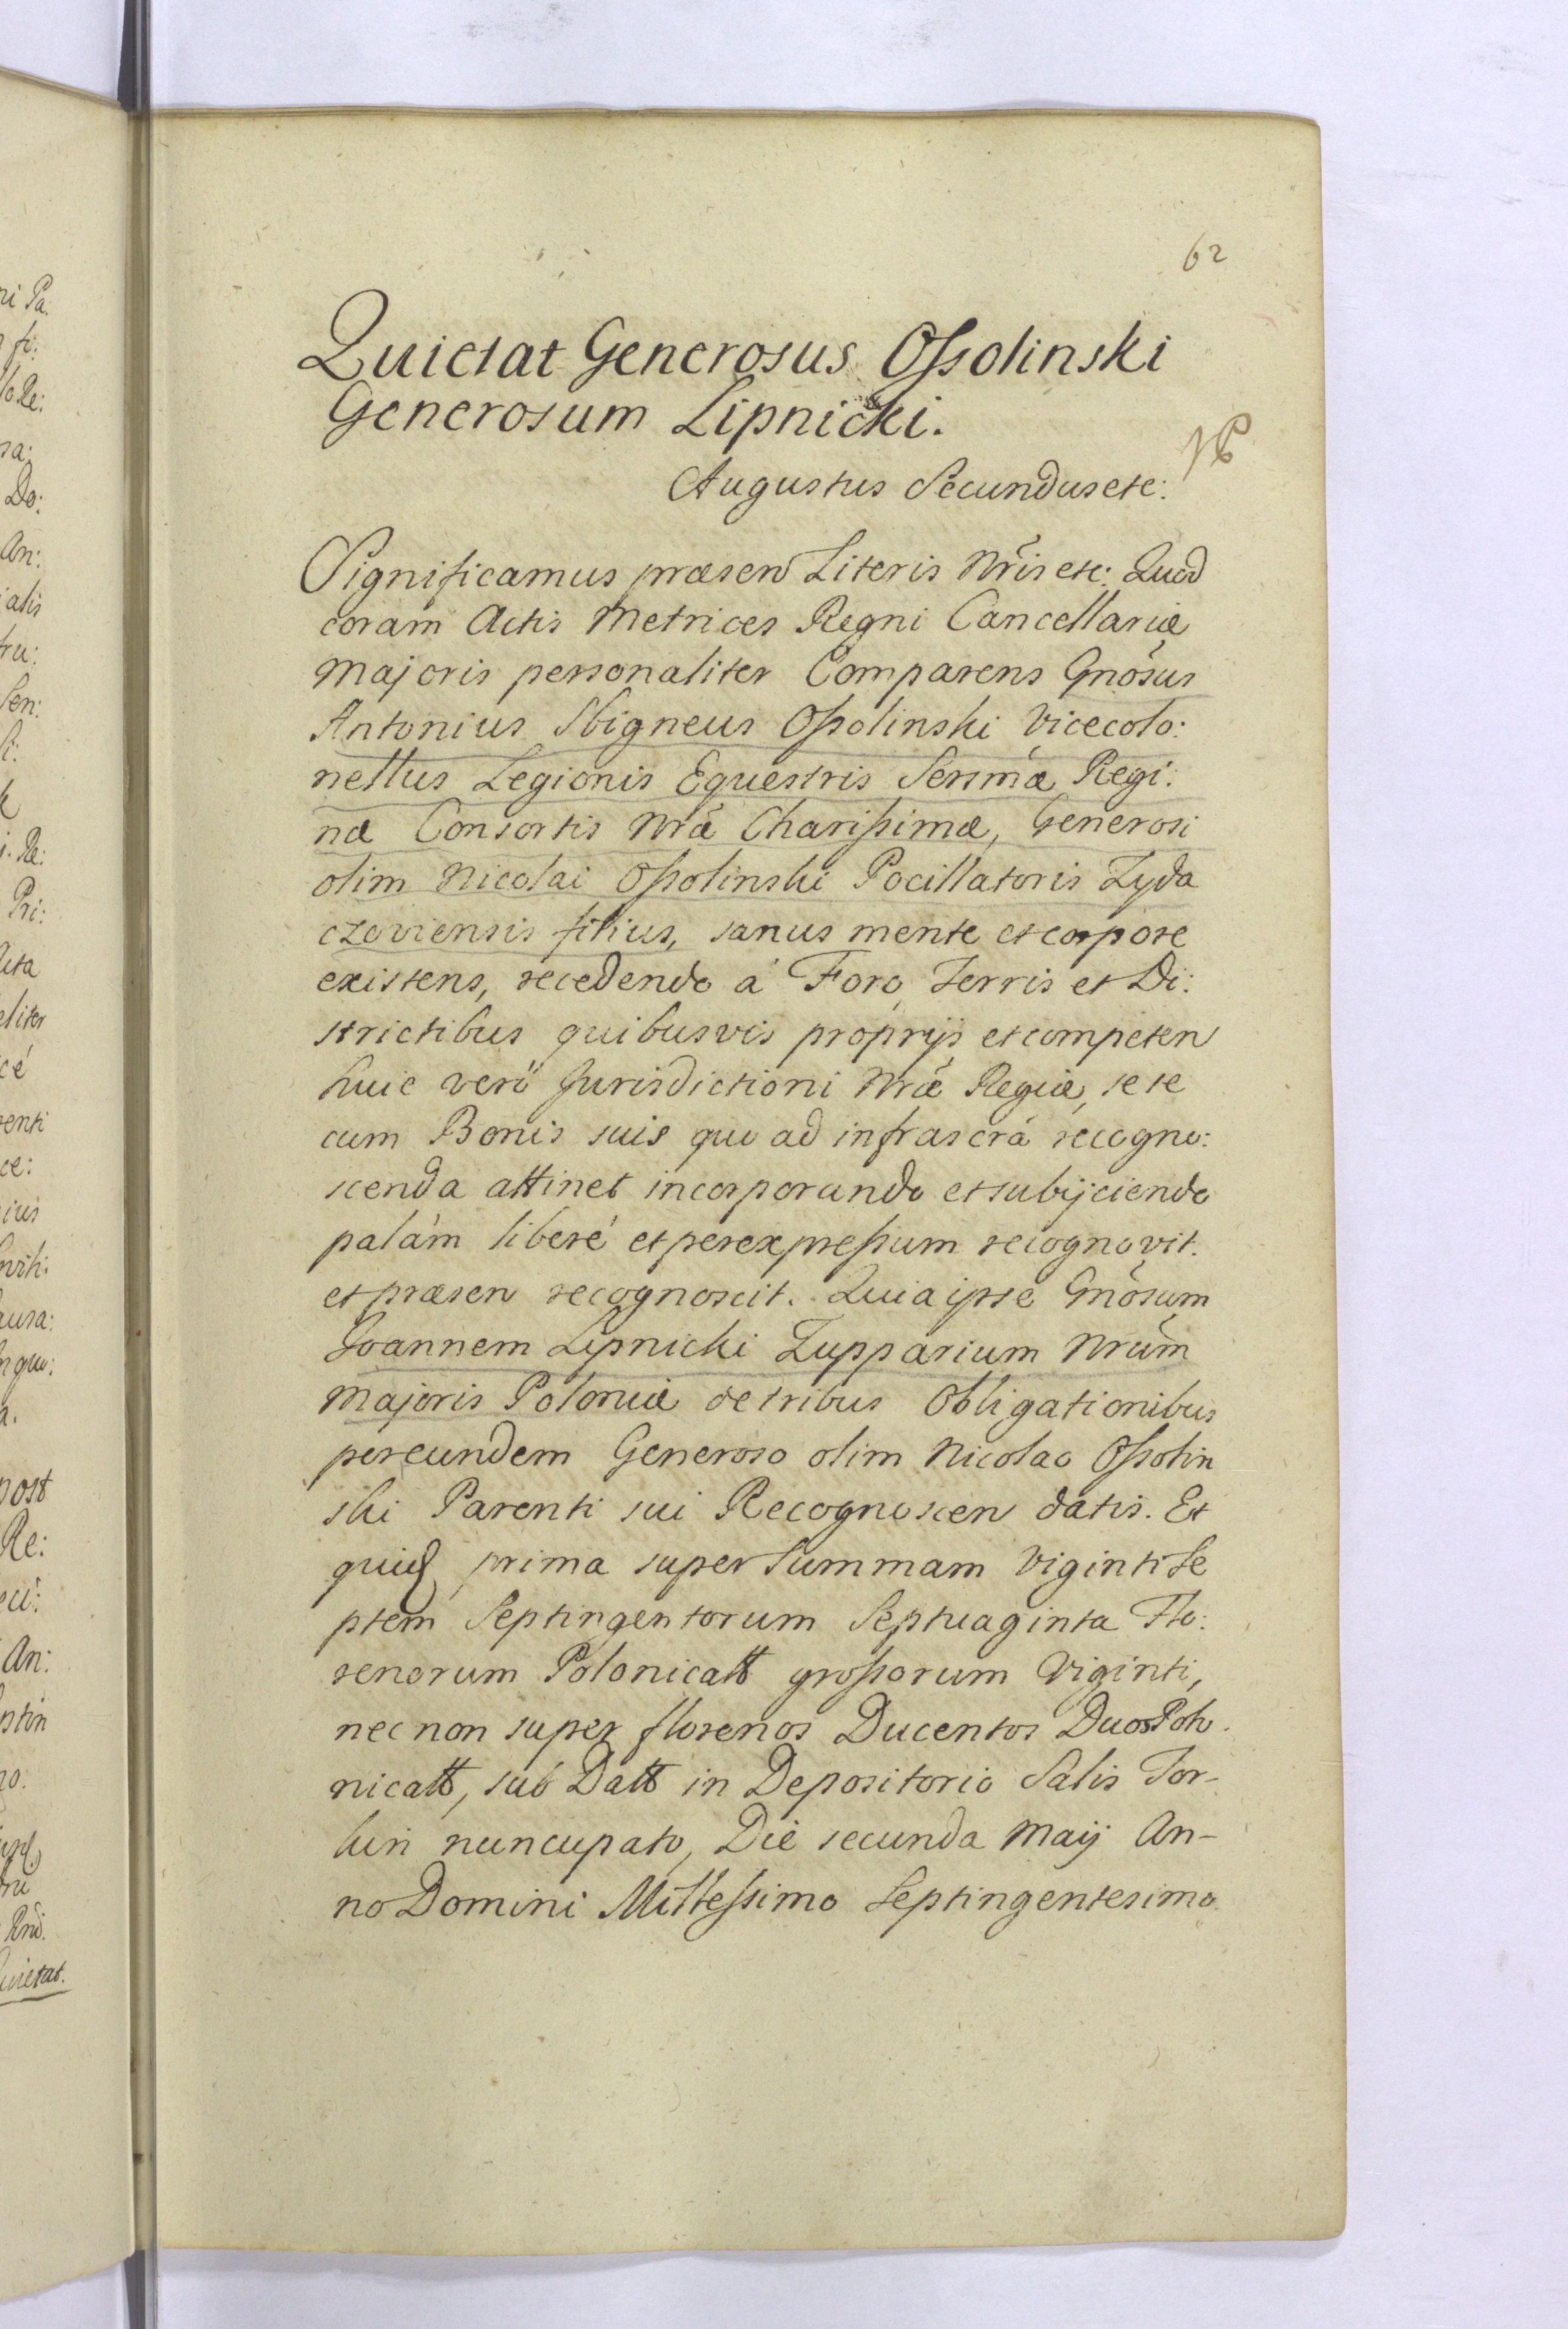 62
Quietat Generosus Ossolinski
Generosum Lipnicki.
Augustus Secundus etc:
Significamus præsen Literis Nris etc: Quod
coram Actis Metrices Regni Cancellariæ
Majoris personaliter Comparens Gnosus
Antonius Sbigneus Ossolinski Vicecolo:
nellus Legionis Equestris Sersmæ Regi:
næ Consortis Nræ Charissimæ, Generosi
olim Nicolai Ossolinski Pocillatoris Zyda
czoviensis filius, sanus mente et corpore
existens, recedendo á Foro, Terris et Di:
strictibus quibusvis proprijs et competen
huic veró Jurisdictioni Nræ Regiæ, se se
cum Bonis suis quo ad infrascra recogno:
scenda attinet incorporando et subijciendo
palám liberé et per expressum recognovit.
et præsen recognoscit. Quia ipse Gnosum
Joannem Lipnicki Zupparium Nrum
Majoris Poloniæ de tribus Obligationibus
per eundem Generoso olim Nicolao Ossolin
ski Parenti sui Recognoscen datis. Et
prima super Summam Viginti Se
ptem Septingentorum Septuaginta Flo:
renorum Polonicalt grossorum Viginti,
nec non super florenos Ducentos Duos Polo.
nicalt, sub Datt in Depositorio Salis For-
nuncupato, Die secunda Maij An-
no Domini Millessimo Septingentesimo
ni Pa.
fi:
Re:
Do:
An:
Sen:
Re:
Pri:
post
Re:
An:
Quietat.